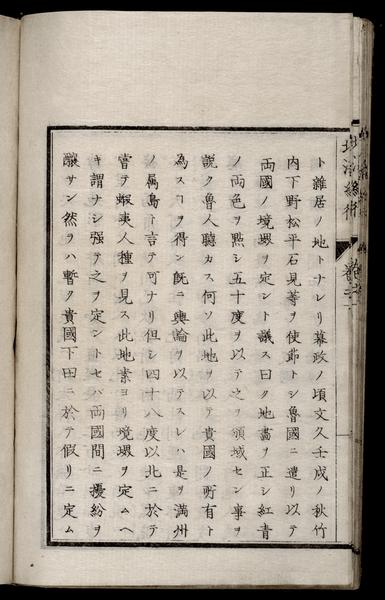 ト雜居ノ地トナレリ幕政ノ頃文久壬戌ノ秋竹
内下野松平石見等ヲ使節トシ魯國ニ遣リ以テ
両國ノ境堺ヲ定ント議ス曰ク地畵ヲ正シ紅青
ノ両色ヲ點シ五十度ヲ以テ之ヲ領域セン事ヲ
説ク魯人聽カス何ソ此地ヲ以テ貴國ノ所有ト
為スヿヲ得ン既ニ輿論ヲ以テスレハ是ヲ満州
ノ属島ト言テ可ナリ但シ四十八度以北ニ於テ
嘗テ蝦夷人種ヲ見ス此地素ヨリ境堺ヲ定ムヘ
キ謂ナシ强テ之ヲ定ントセバ両國間ニ擾紛ヲ
釀サン然ラハ暫ク貴國下田ニ於テ假リニ定ム